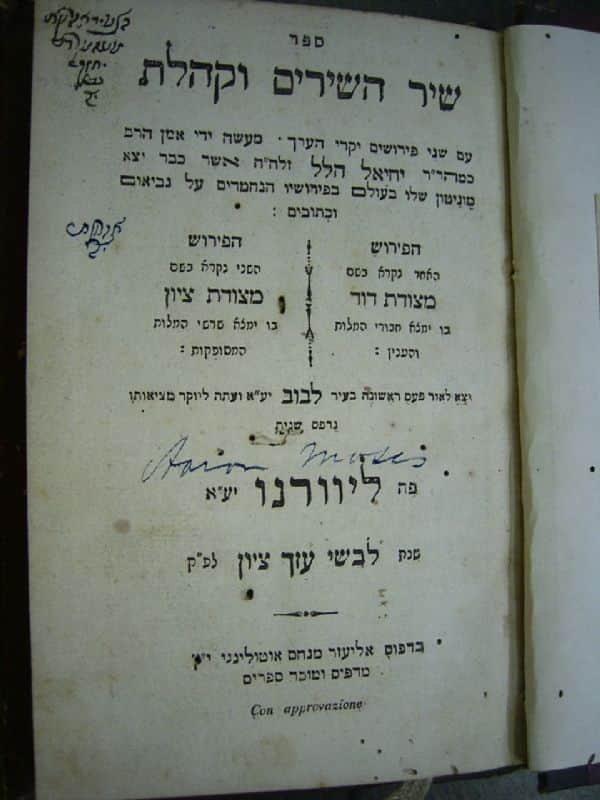 ספר
שיר השירים וקהלת
עם שני פירושים יקרי הערך · מעשה ידי אמן הרב
כמהר״ר יחיאל הלל זלה״ה אשר כבר יצא
מוניטון שלו בעולם בפירושיו הנחמדים על נביאום
וכתובים :
הפירוש
האחד נקרא בשם
מצודת דוד
בו ימלא חבורי המלות
והענין :
הפירוש
השני נקרא בשם
מצודת ציון
בו ימלא שרשי המלות
המסופקות :
יצא לאור פעם ראשונה בעיר לבוב יע״א ועתה ליוקר מציאותו
נדפס שנית
Aaron Moses
פה ליוורנו יע״א
שנת לבשי עזך ציון לפ״ק
בדפוס אליעזר מנחם אוטולינגי
מדפיס ומוכר ספרים
Con approvazione